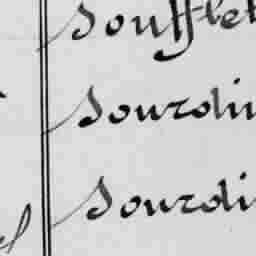 Soufflet
Sourdi
Sourdi